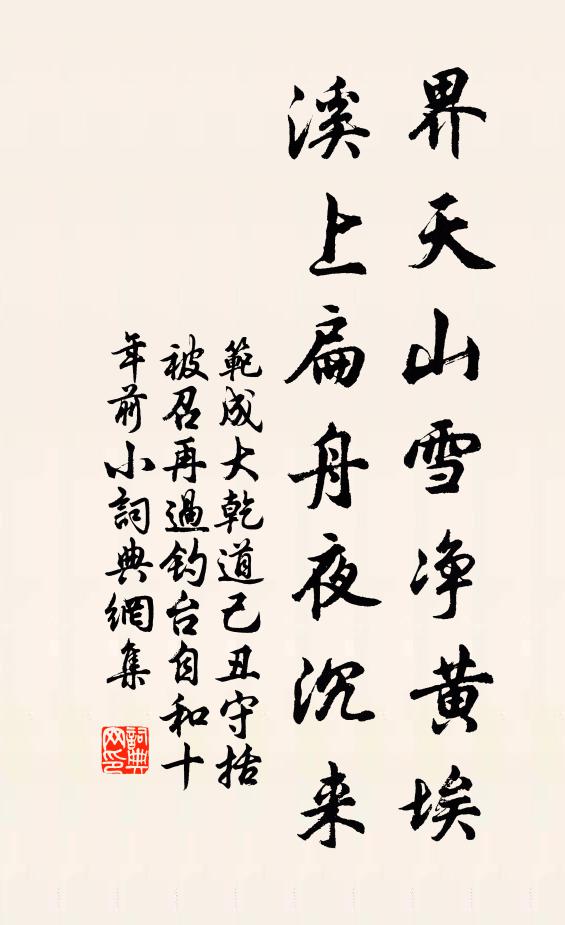 界天山雪净黄埃
溪上扁舟夜沉来
範成大乾道己丑守括
被召再過釣台自和十
年前小詞典網集
詞典网印